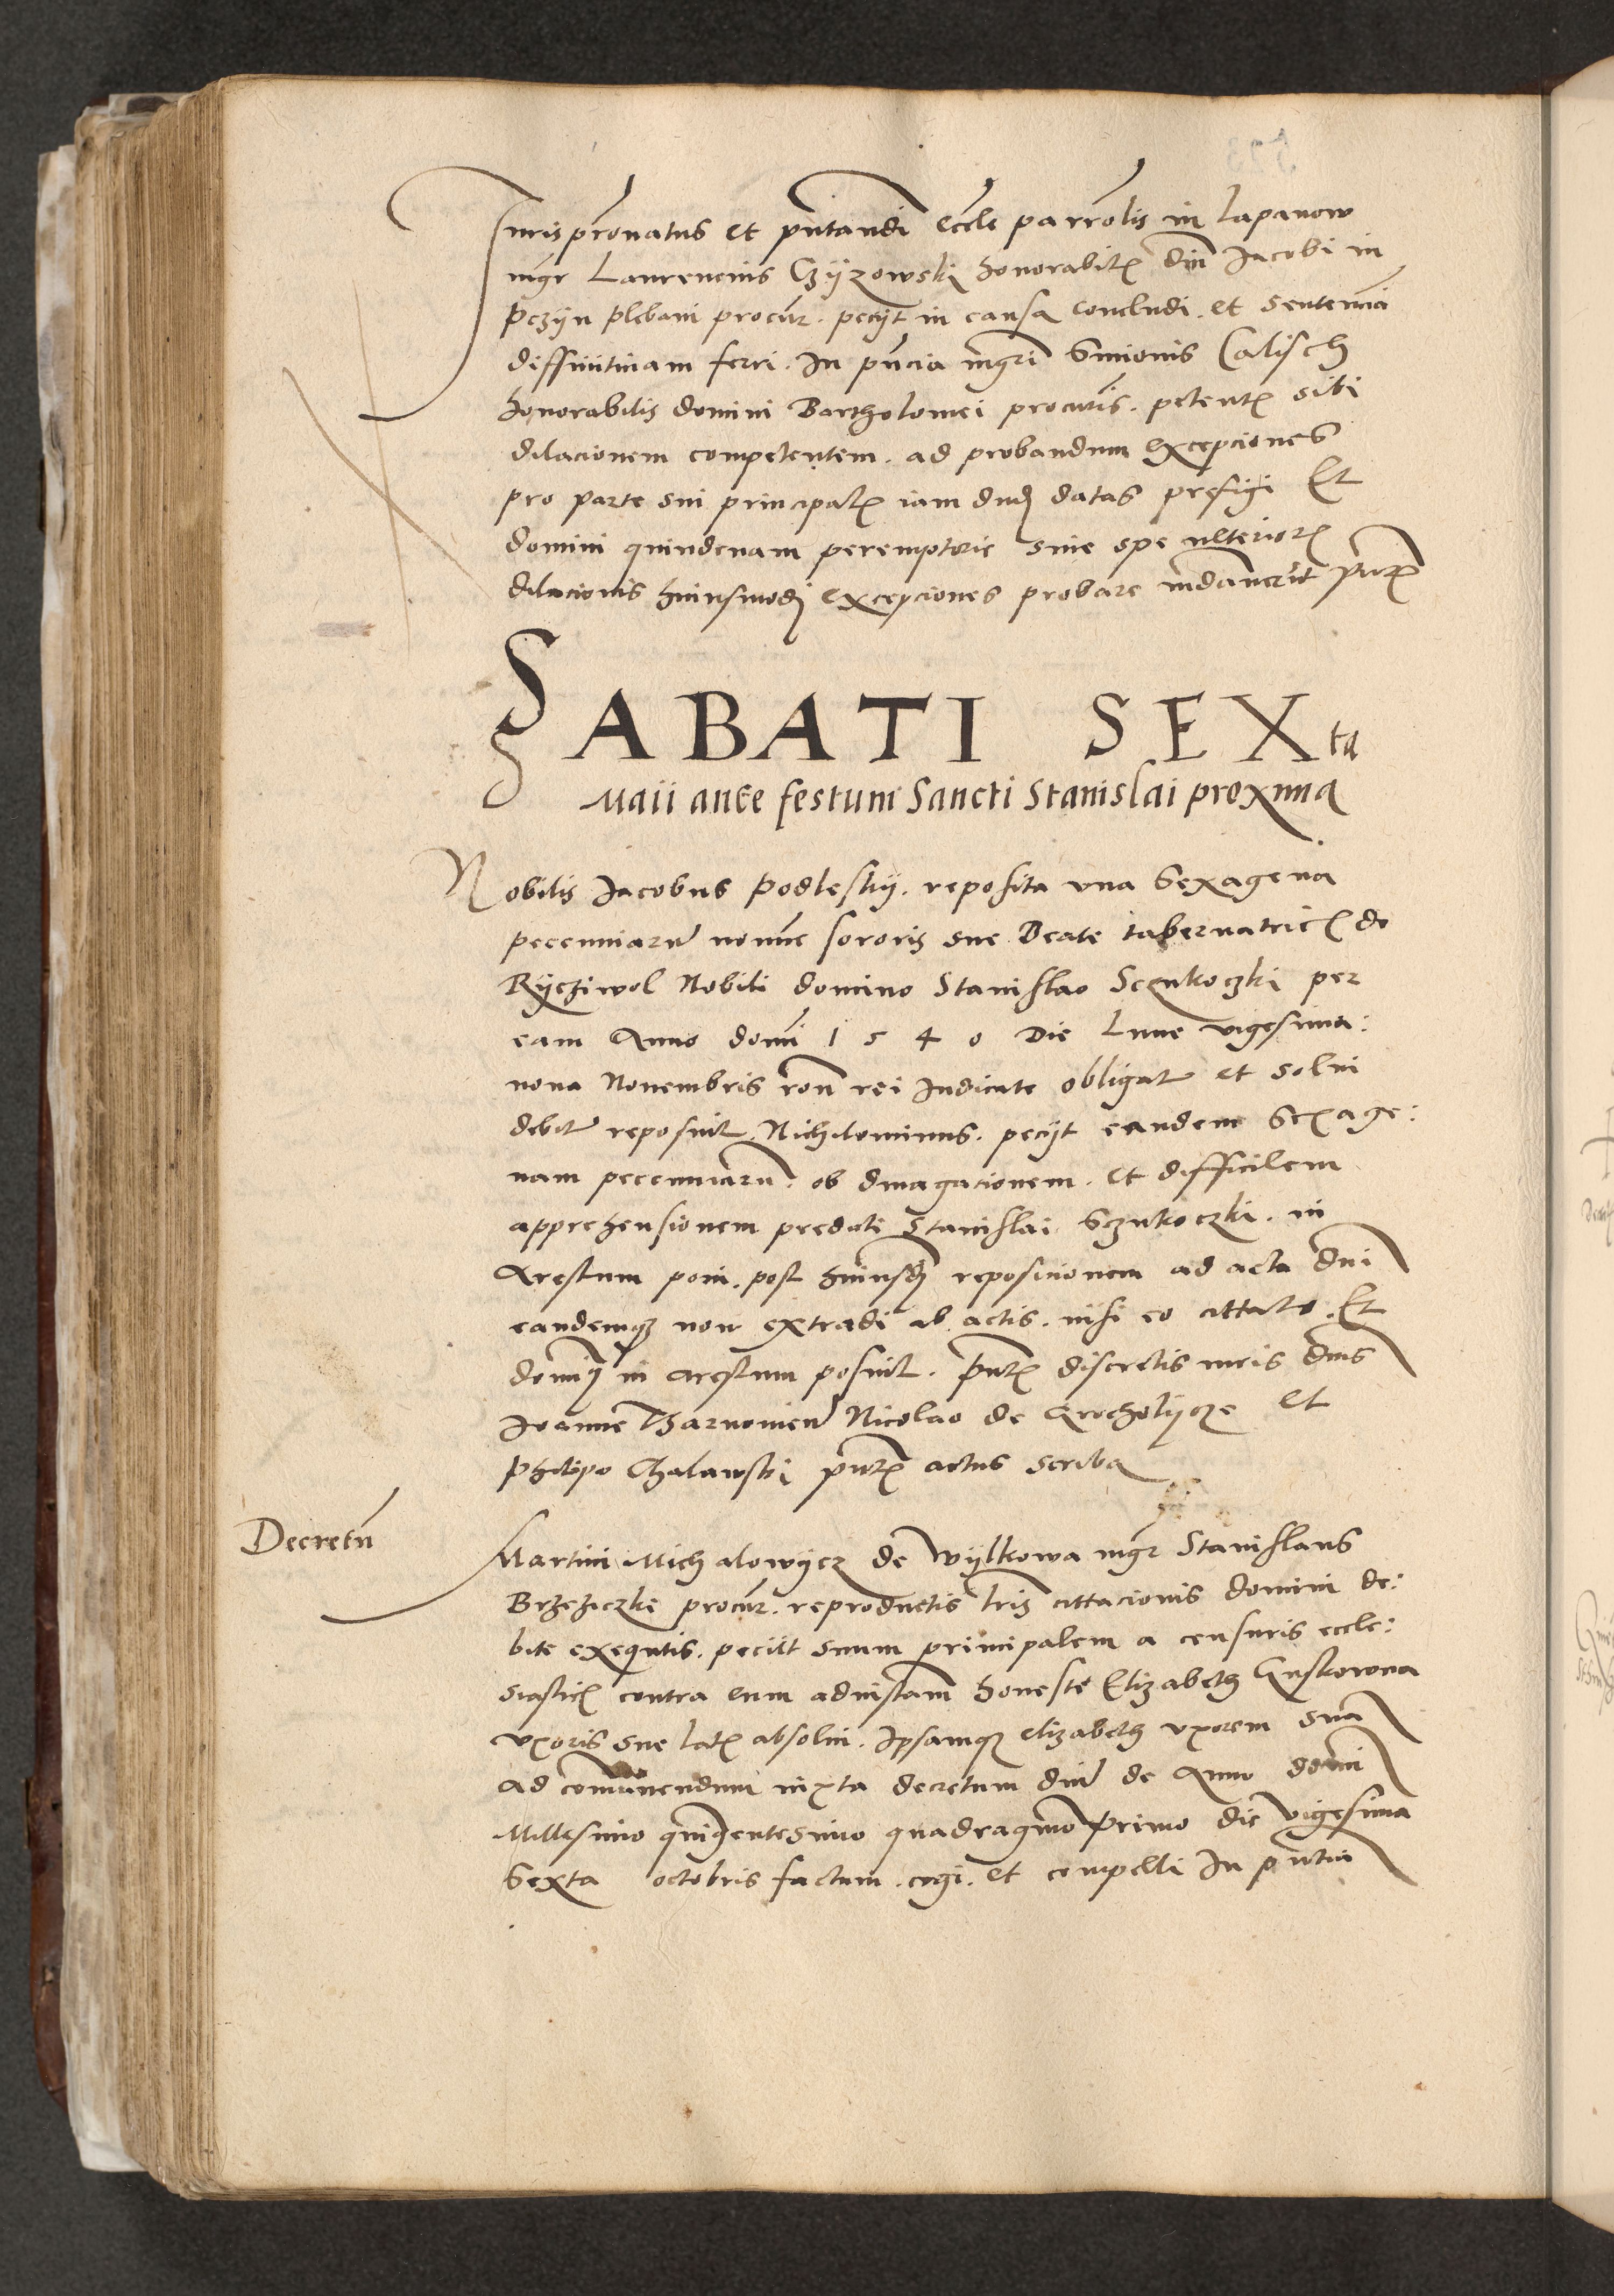 Juris pronatus et pntandi eccle parrolis in Lapanow
mgr Laurencius Czyzowski honorabil dni Jacobi in
Pczyn plebani procur. peciit in causa concludi. et sententia
diffinitivam ferri. In pncia mgri Simonis Calisch
honorabilis domini Bartholomei procutis. petent sibi
dilacionem competentem. ad probandum excepciones
pro parte sui principal iam dud datas prefigi Et
domini quindenam peremptorie sine spe ulterior
dilacionis huiusmodi excepciones probare mdaverut pnt
SABATI SEXta
Maii ante festum Sancti Stanislai proxima
Nobilis Jacobus Podleskij. reposita una Sexagena
pecuniaru nomine sororis sue Beate tabernatric de
Rycziwol Nobili domino Stanislao Sczukoczki per
eam Anno domi 1540 Die Lune vigesima:
nona Novembris ron rei Judicate obligat et solvi
debit reposuit. Nichilominus. peciit eandem Sexage:
nam pecuniaru. ob divagationem. et difficilem
apprehensionem predicti Stanislai Sczukoczki. in
Arestum poni. post huiusd reposicionem ad acta dni
eandemq non extradi ab actis. nisi eo cittato. Et
domin in arestum posuit. pnt discretis viris dnis
Joanne Tharnovien Nicolao de Grocholycze et
Philippo Chalawski pnt actus scriba
Decretu
Martini Michalowycz de Wylkowa mgr Stanislaus
Brzeziczki procur. reproductis lris cittacionis domini de:
bite exequtis. peciit suum principalem a censuris eccle:
siastic contra eum ad instam honeste Elizabeth Guskowna
uxoris sue lat absolvi. Ipsamq Elizabeth uxorem sua
ad comunendum iuxta decretum dni de Anno domi
Millesimo quingentesimo quadragmo primo die vigesima
Sexta octobris factum. cogi. et compelli In pntia